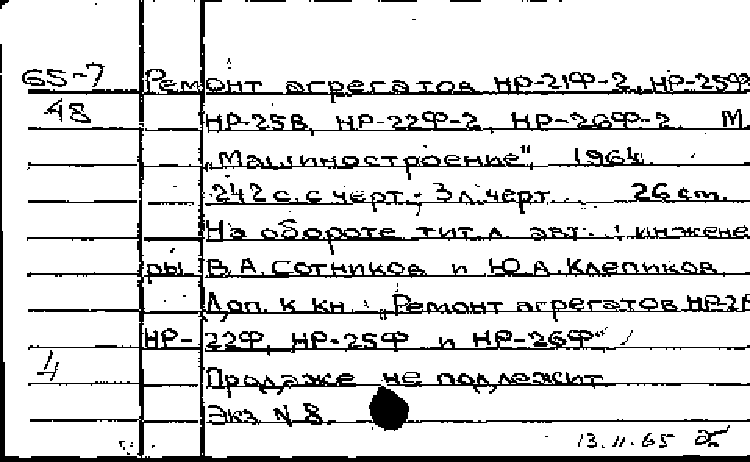 65-7 Ремонт агрегатов НР-21Ф-2, НР-25Ф
48 НР-25В, НР-22Ф-2, НР-26Ф-2. М.
„Машиностроение", 1964.
242 с. с черт.; 3 л. черт. 26 cm.
На обороте тит. л. авт.: инжене
ры В.А. Сотников и Ю.А. Клепиков
Доп. к кн.: „Ремонт агрегатов НР-21
НР-22Ф, НР-25Ф и НР-26Ф"
4 Продаже не подлежит
Экз. N 8.
13.11.65